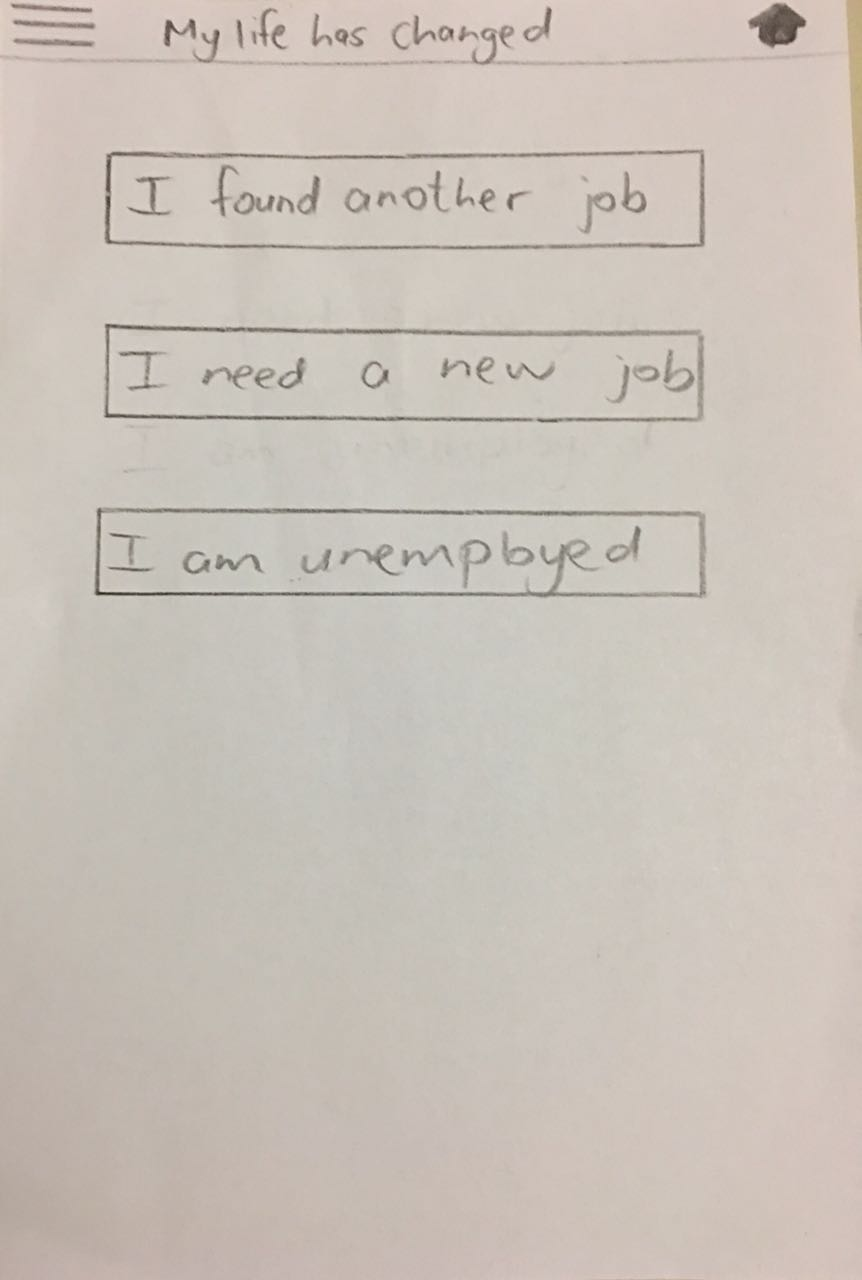 My life has changed
I found another job
I need a new job
I am unemployed